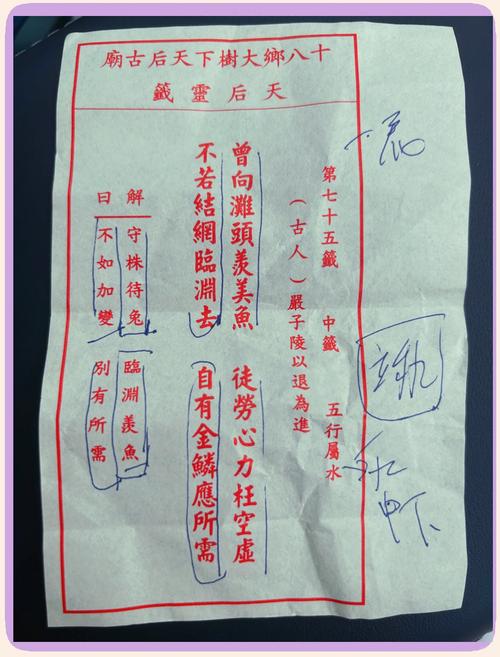 十八鄉大樹下天后古廟
天后靈籤
第七十五籤 中籤 五行屬水
（古人）嚴子陵以退為進
曾向灘頭羨美魚 徒勞心力枉空虛
不若結網臨淵去 自有金鱗應所需
解曰
守株待兔 臨淵羨魚
不如加變 別有所需